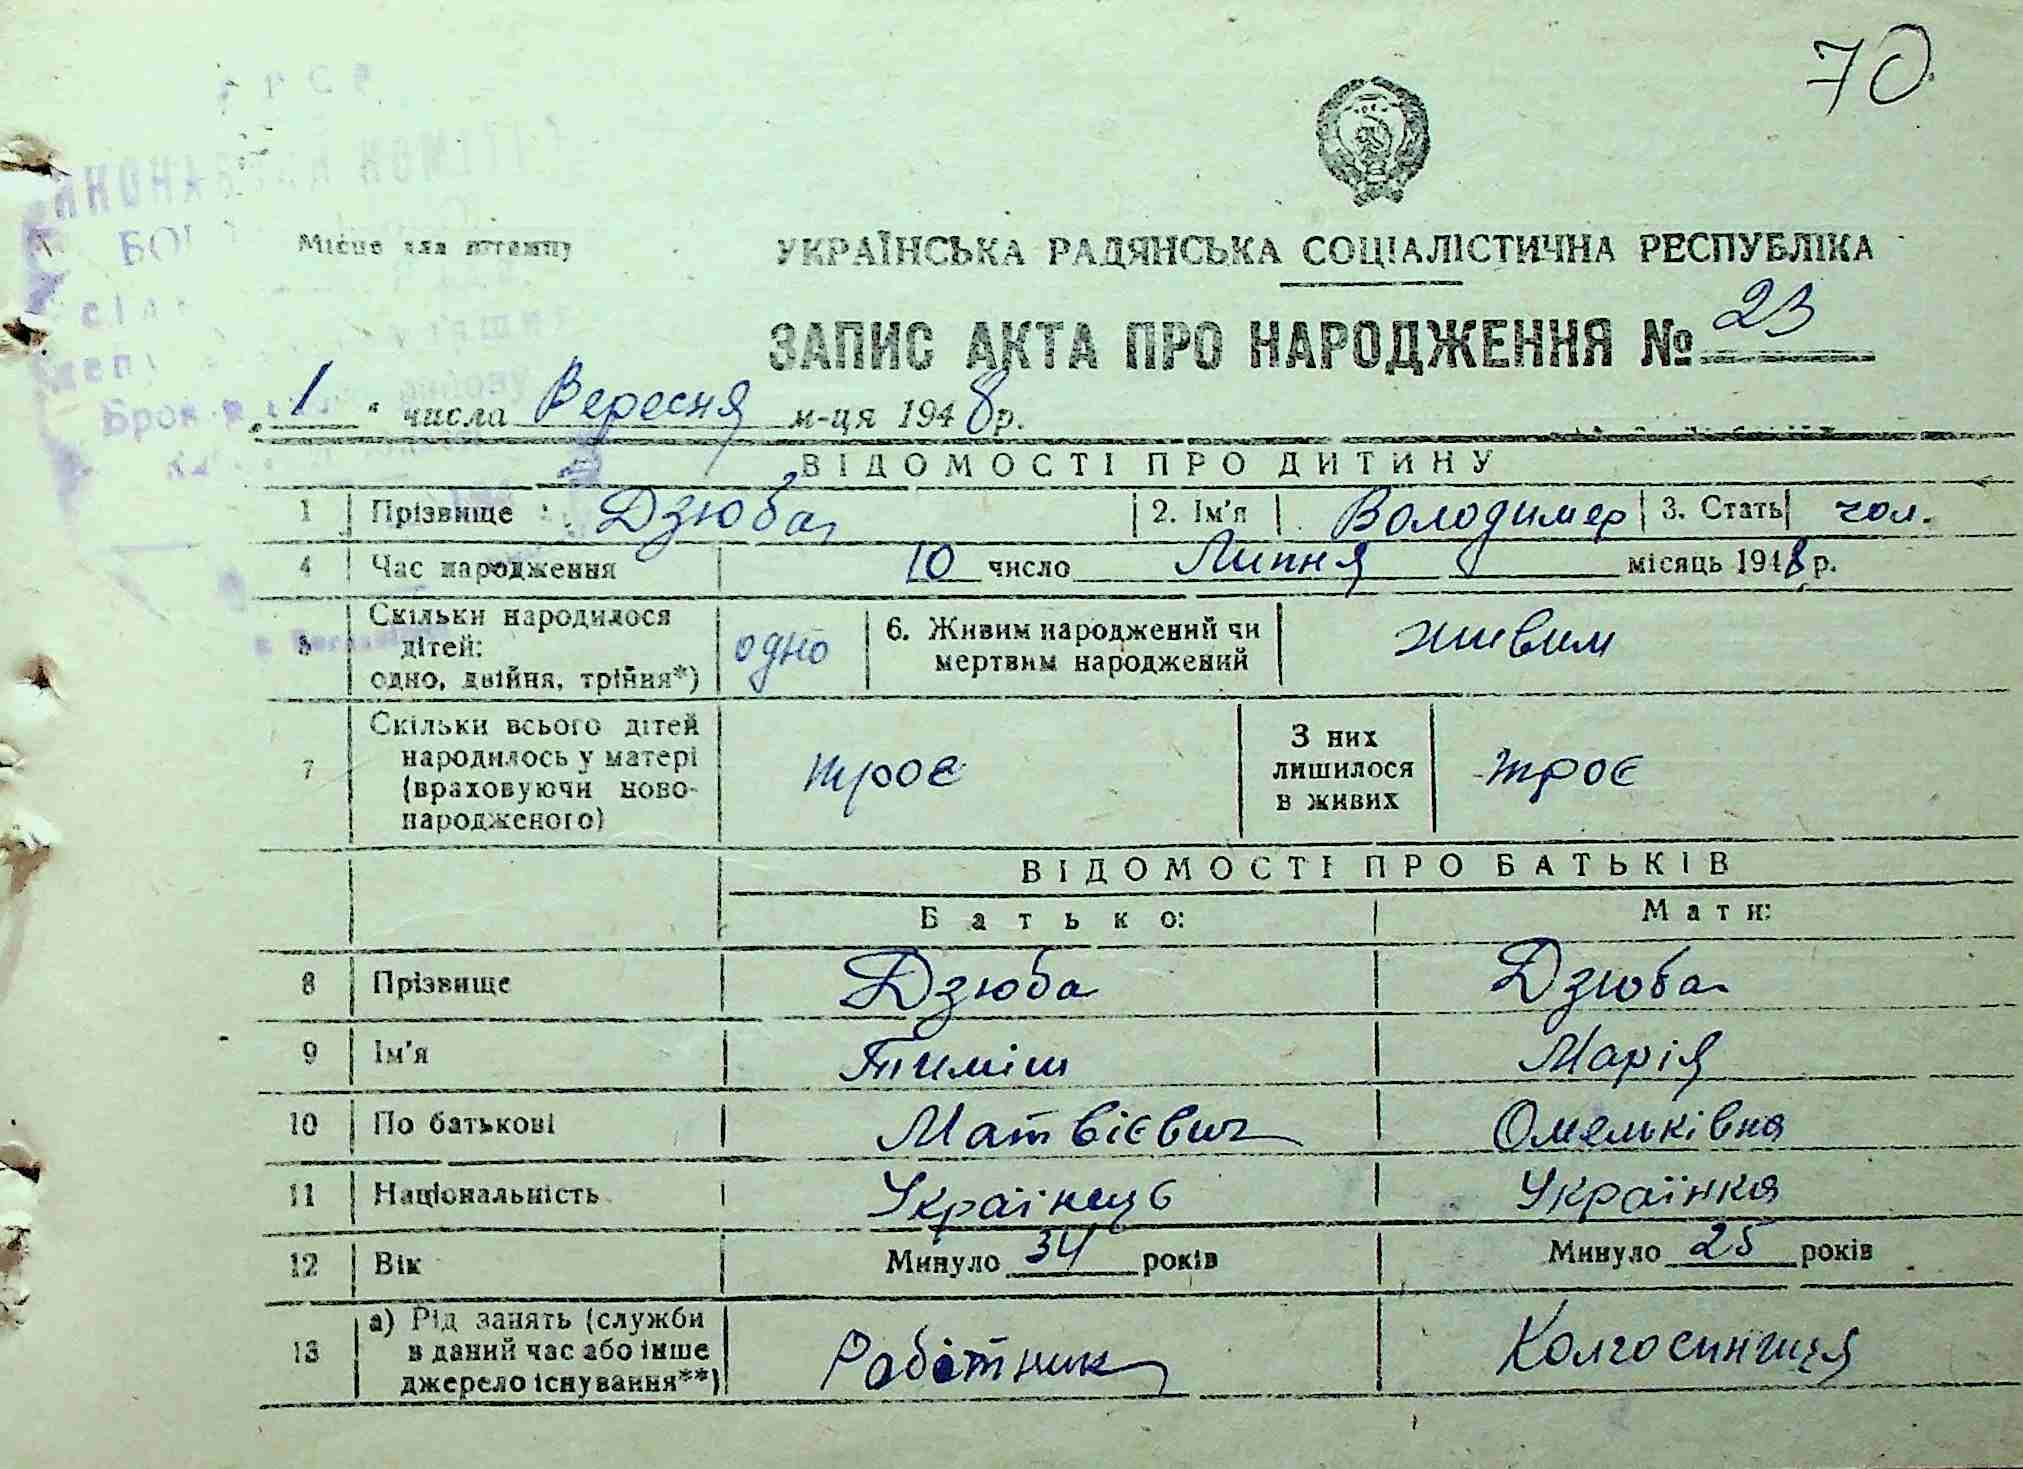 70
Місце для штампу
УКРАЇНСЬКА РАДЯНСЬКА СОЦІАЛІСТИЧНА РЕСПУБЛІКА
ЗАПИС АКТА ПРО НАРОДЖЕННЯ № 23
„ 1 " числа Вересня м-ця 1948 р.
ВІДОМОСТІ ПРО ДИТИНУ
1 Прізвище Дзюба 2. Ім'я Володимер 3. Стать чол.
4 Час народження 10 число Липня місяць 1948 р.
5 Скільки народилося дітей: одно, двійня, трійня*) одно 6. Живим народжений чи мертвим народжений живим
7 Скільки всього дітей народилось у матері (враховуючи ново-народженого) троє З них лишилося в живих троє
ВІДОМОСТІ ПРО БАТЬКІВ
Батько: Мати:
8 Прізвище Дзюба Дзюба
9 Ім'я Тиміш Марія
10 По батькові Матвієвич Омельківна
11 Національність Українець Українка
12 Вік Минуло 34 років Минуло 25 років
13 а) Рід занять (служби в даний час або інше джерело існування**) Работник Колгоспниця